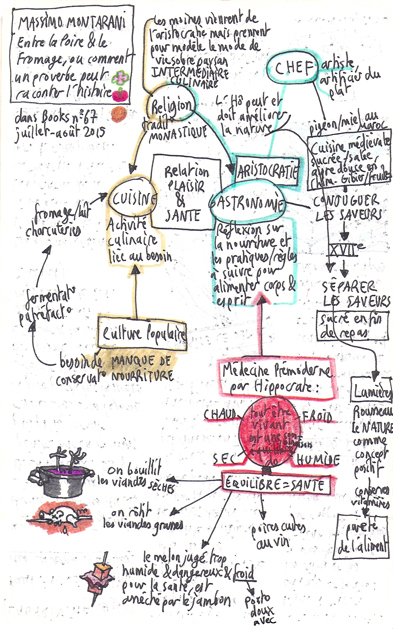 MASSIMO MONTANARI
Entre la Poire & le
Fromage, ou comment
un proverbe peut
raconter l'histoire
dans Books n°67
juillet-août 2015
Les moines vivent de
l'aristocratie mais prennent
pour modèle le mode de
vie sobre paysan
INTERMÉDIAIRE
CULINAIRE
Religion
MONASTIQUE
CHEF
artiste,
artificier du
plat
L'H peut et
doit améliorer
la nature
pigeon/miel au
Maroc
Cuisine médiévale
sucrée/salée,
aigre douce en
Gibier/fruits
Relation
PLAISIR
&
SANTE
ARISTOCRATIE
CUISINE
Activité
culinaire
liée au besoin
ASTRONOMIE
Réflexion sur
la nourriture et
les pratiques/règles
à suivre pour
alimenter corps &
esprit
CONJUGUER
LES SAVEURS
XVIIe
SÉPARER
LES SAVEURS
sucré en fin
de repas
fromage/lait
charcuteries
fermentat°
putréfact°
besoin de
conservat°
Culture Populaire
MANQUE DE
NOURRITURE
Médecine Prémoderne
par Hippocrate :
CHAUD
FROID
SEC
HUMIDE
tout être
vivant
est une
ÉQUILIBRE = SANTE
Lumières
Rousseau
le NATUREL
comme
concept
positif
conserves
vitamines
pureté
de l'aliment
on bouillit
les viandes SÈCHES
on rôtit
les viandes grasses
poires cuites
au vin
le melon jugé trop
humide & dangereux & froid
pour la santé, est
avec par le jambon
porto
doux
avec